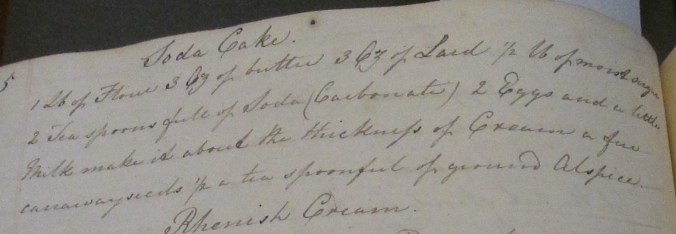 5
Soda Cake.
1 Lb of Flour 3 Oz of butter 3 Oz of Lard ½ lb of moist sugar
2 Tea spoons full of Soda (Carbonate) 2 Eggs and a little
Milk make it about the thickness of Cream a few
carraway seeds ½ a tea spoonful of ground Alspice
Rhenish Cream.